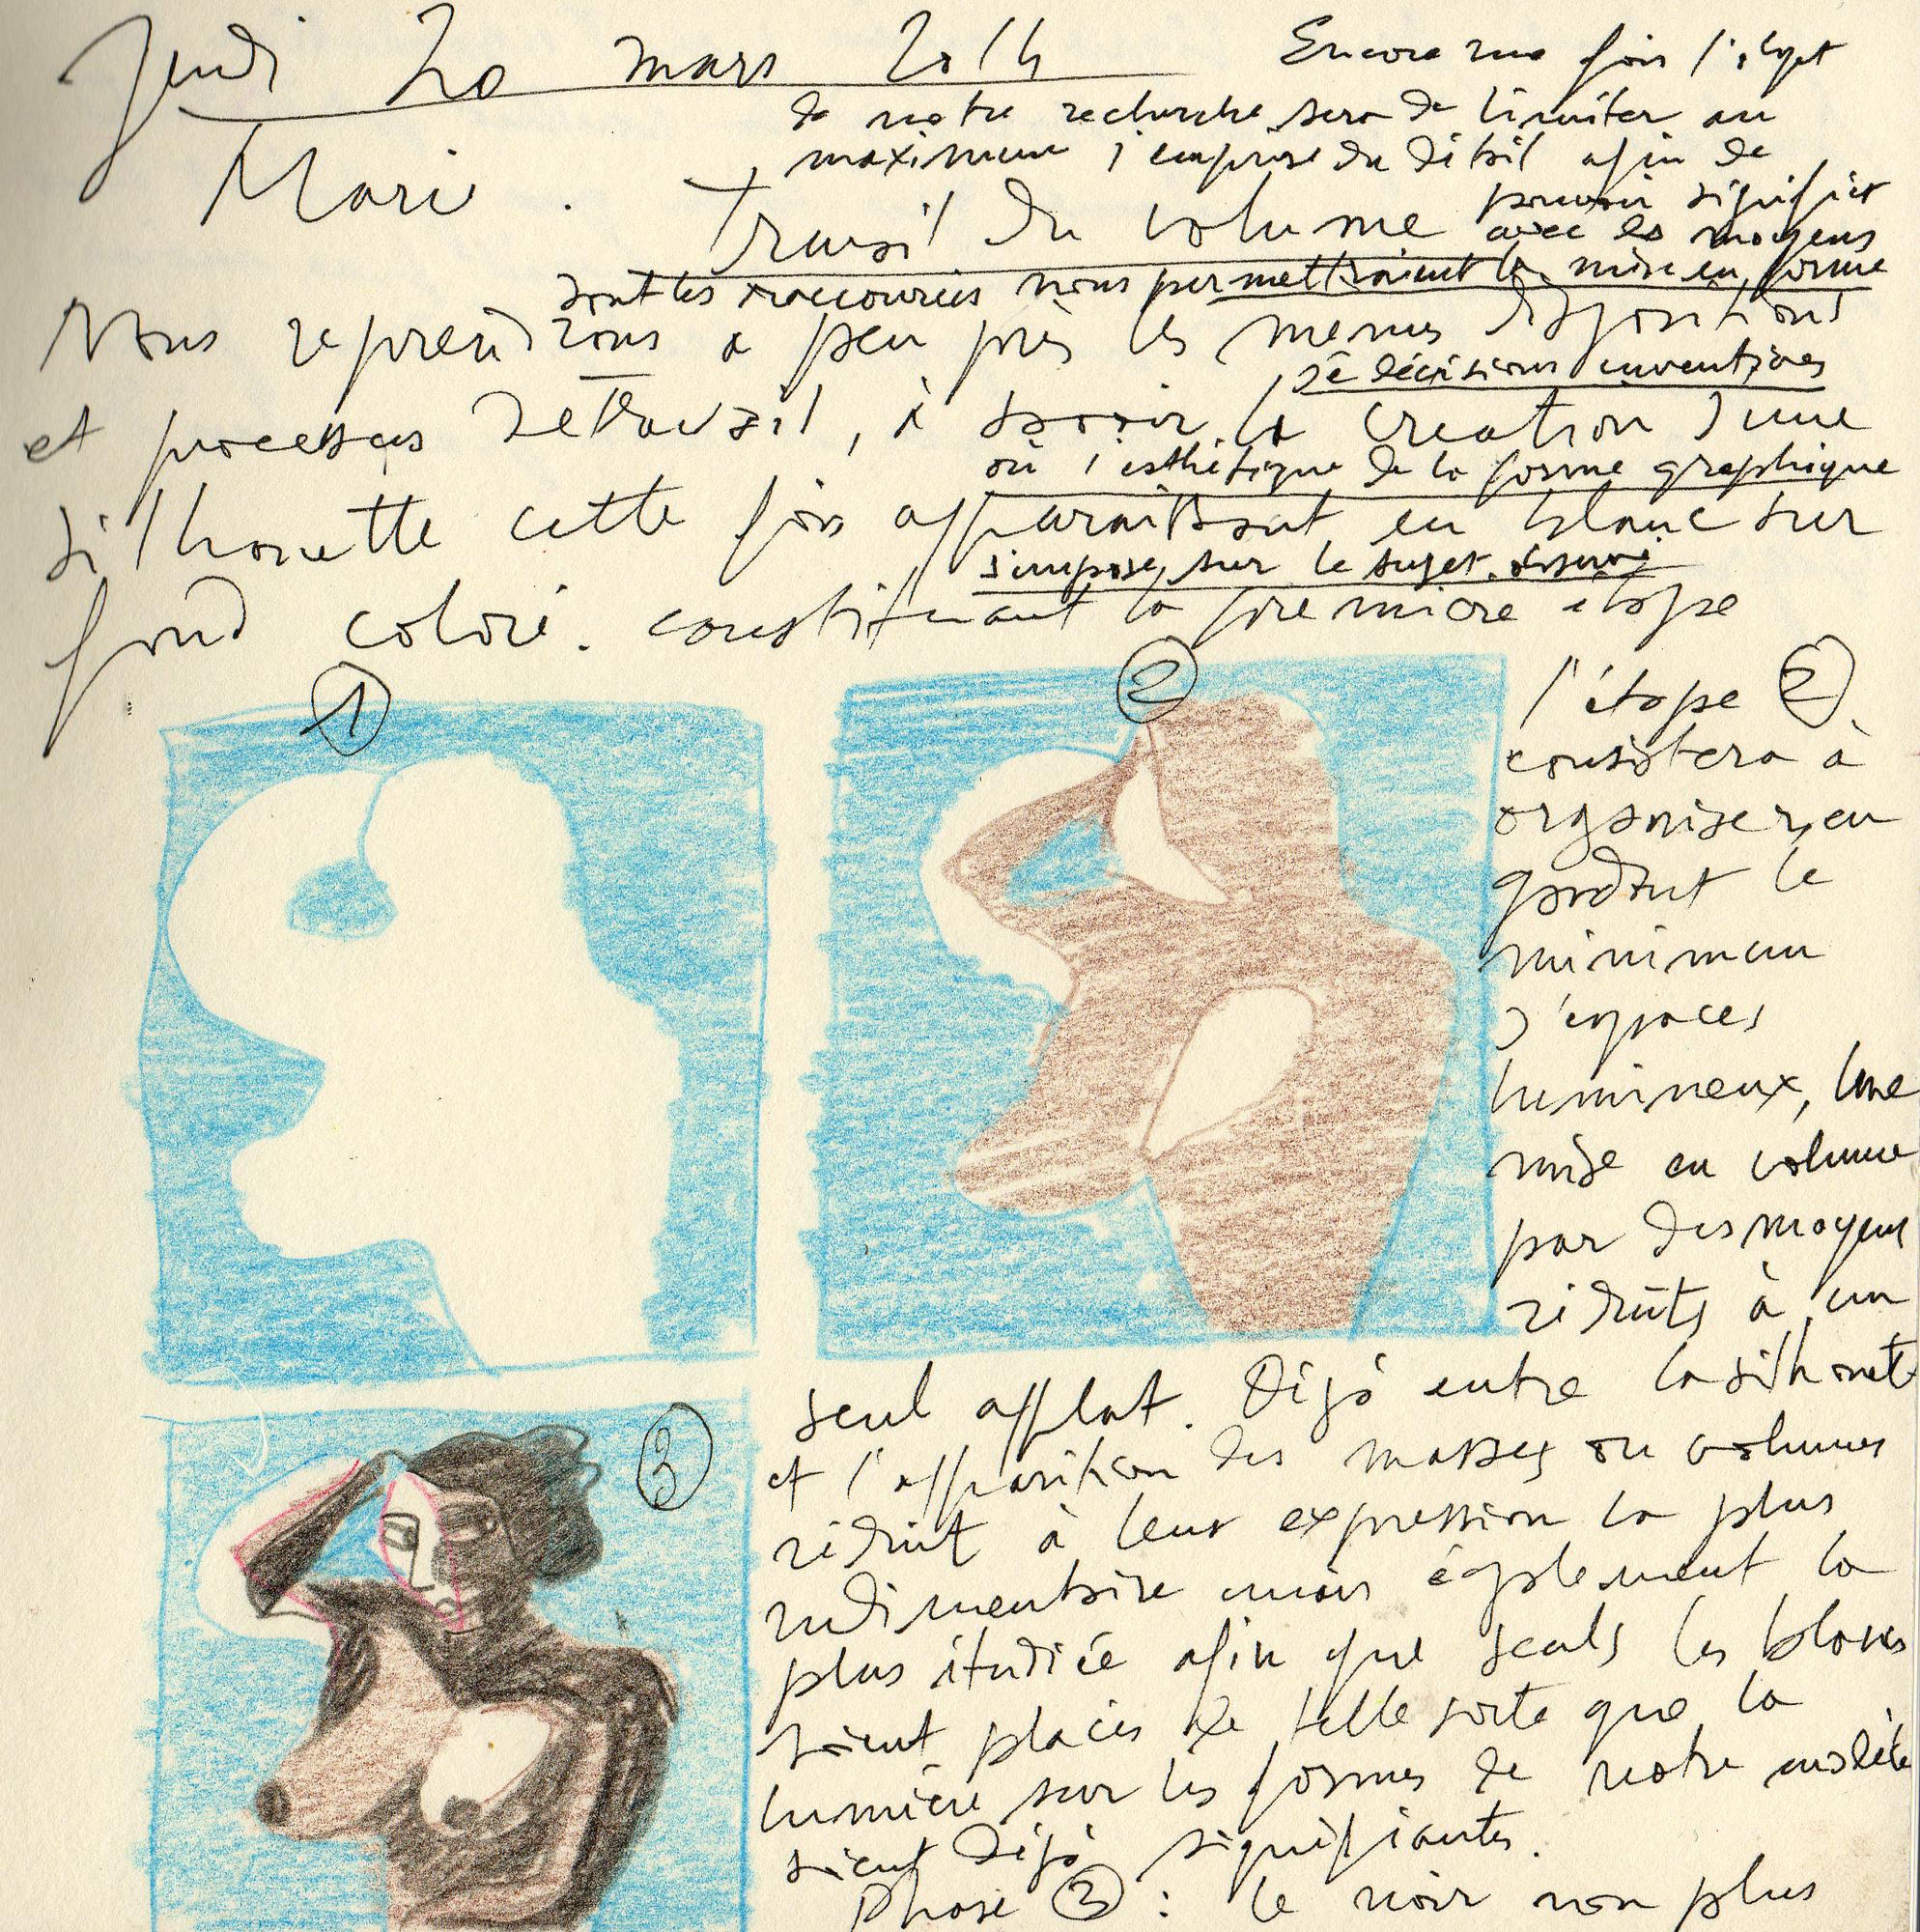 Jeudi 20 mars 2014
Marie.
Travail du volume
Encore une fois l'objet
de notre recherche sera de limiter au
maximum l'emprise du détail afin de
pouvoir signifier
avec les moyens
dont les raccourcis nous permettraient la mise en forme
de décisions inventives
où l'esthétique de la forme graphique
s'impose sur le sujet
Nous reprendrons à peu près les mêmes dispositions
et processus de travail, à savoir la création d'une
silhouette cette fois apparaissant en blanc sur
fond coloré. constituant la première étape
1
2
l'étape 2
consistera à
organiser, en
gardant le
minimum
d'espaces
lumineux, une
mise en volume
par des moyens
réduits à un
seul applat. Déjà entre la silhouet
et l'apparition des masses ou volumes
réduit à leur expression la plus
rudimentaire mais également la
plus étudiée afin que seuls les blancs
soient placés de telle sorte que la
lumière sur les formes de notre modèle
soient déjà signifiantes.
3
Phase 3 : le noir non plus